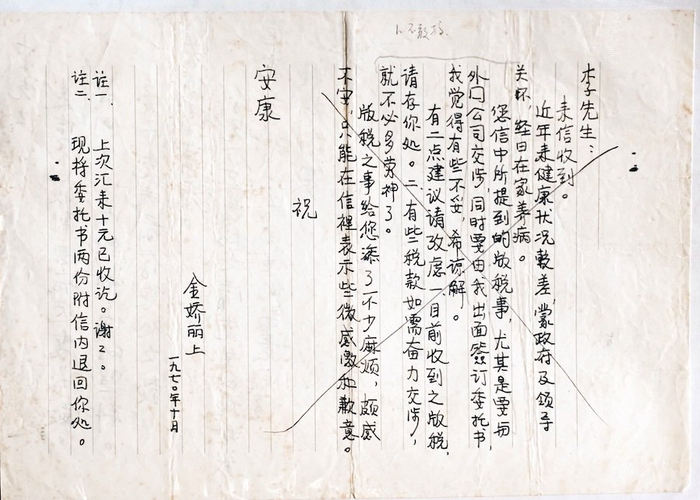 李先生：
来信收到。
近年来健康状况較差，蒙政府及领导
关怀，经日在家养病。
您信中所提到的版税事，尤其是要与
外门公司交涉，同时要由我出面签订委托书，
我觉得有些不妥，希谅解。
有二点建议请考虑一、目前收到之版税，
请存你处。二、有些税款如需奋力交涉，
就不必多劳押了。
版税之事给您添了不少麻烦，颇感
不安，只能在信裡表示些微感激和歉意。
祝
安康
金娇丽上
一九七〇年十月
註一、上次汇来十元已收讫。谢々。
註二、现将委托书两份附信内退回你处。